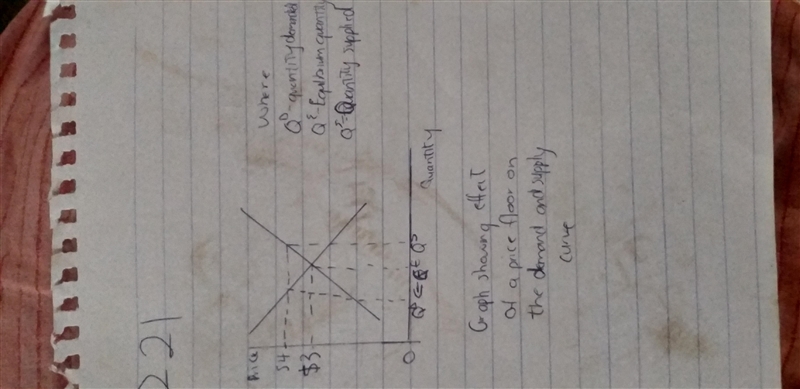 221
Where
Q^D - quantity demanded
Q^E - Equilibrium quantity
Q^S - Quantity supplied
Price
$4
$3
0
Q^D Q^E Q^S
Quantity
Graph showing effect
of a price floor on
the demand and supply
curve